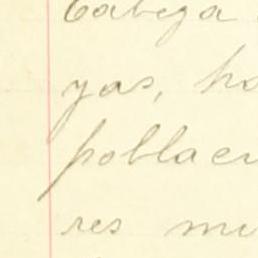 Cabeza
yas, ha
poblacu
res mu